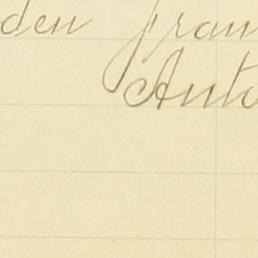 den fran
Anto